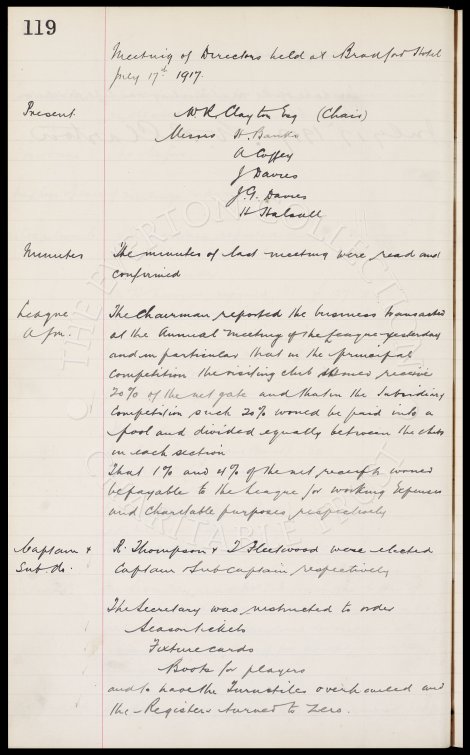 119
Meeting of Directors held at Bradford Hotel
July 17th 1917.
Present W R Clayton Esq (Chair)
Messrs H. Banks
A Coffey
J Davies
J. G. Davies
H Halsall
Minutes The minutes of last meeting were read and
confirmed
League The Chairman reported the business transacted
A G M. at the Annual Meeting of the League yesterday
and in particular that in the principal
Competition the visiting club should receive
20% of the net gate and that in the Subsidiary
Competition such 20% would be paid into a
pool and divided equally between the clubs
in each section
That 1% and 4% of the net receipts would
be payable to the League for working Expenses
and Charitable purposes respectively
Captain & R. Thompson & T Fleetwood were elected
Sub do. Captain & Sub Captain respectively
The Secretary was instructed to order
Season tickets
Fixture cards
Boots for players
and to have the Turnstiles overhauled and
the Registers turned to Zero.
THE EVERTON COLLECTION
CHARITABLE TRUST